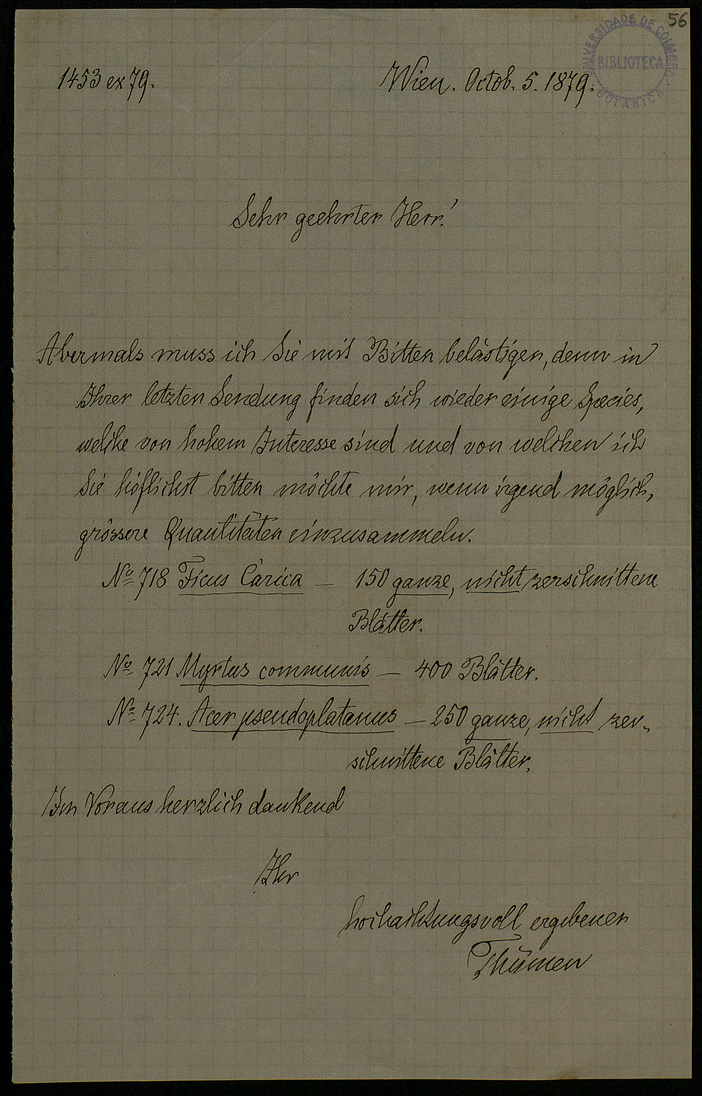 56
UNIVERSIDADE DE COIMBRA
BIBLIOTECA
BOTANICA
1453 ex 79.
Wien. Octob. 5. 1879.
Sehr geehrter Herr!
Abermals muss ich Sie mit Bitten belästigen, denn in
Ihrer letzten Sendung finden sich wieder einige Species,
welche von hohem Interesse sind und von welchen ich
Sie höflichst bitten möchte mir, wenn irgend möglich,
grössere Quantitäten einzusammeln.
No. 718 Ficus Carica — 150 ganze, nicht zerschnittene
Blätter.
No. 721 Myrtus communis — 400 Blätter.
No. 724. Acer pseudoplatanus — 250 ganze, nicht zer-
schnittene Blätter.
Im Voraus herzlich dankend
Ihr
hochachtungsvoll ergebener
Thümen